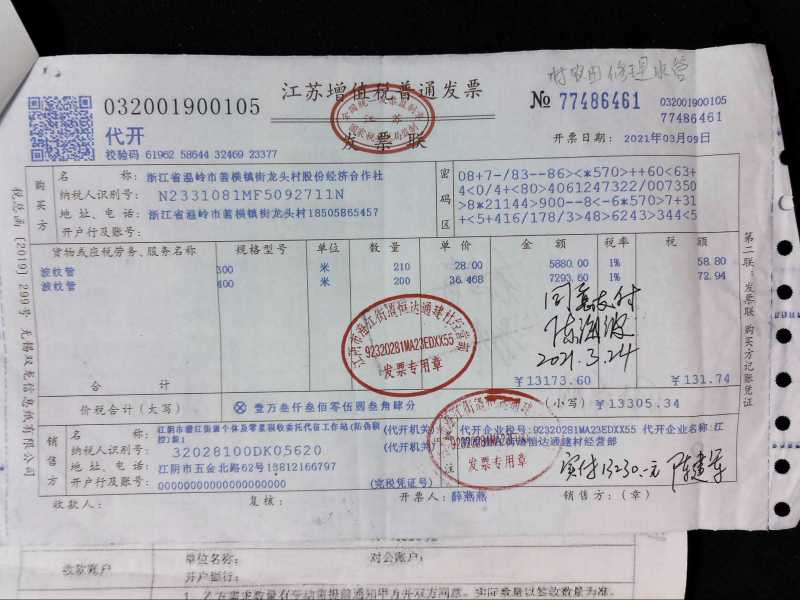 村农田修理水管
江苏增值税普通发票
发票联
032001900105
代开
校验码 61962 58644 32469 23377
№ 77486461
032001900105
77486461
开票日期: 2021年03月09日
税总函〔2019〕299号 无锡双龙信息纸有限公司
购买方
名称: 浙江省温岭市箬横镇街龙头村股份经济合作社
纳税人识别号: N2331081MF5092711N
地址、电话: 浙江省温岭市箬横镇街龙头村18505865457
开户行及账号:
密码区
08+7-/83--86><*570>++60<63+
4<0/4+<80>4061247322/007350
>8*21144>900--8<-6*570>7+31
+<5+416/178/3>48>6243>344<5
货物或应税劳务、服务名称 规格型号 单位 数量 单价 金额 税率 税额
波纹管 300 米 210 28.00 5880.00 1% 58.80
波纹管 400 米 200 36.468 7293.60 1% 72.94
同意支付
陈海波
2021.3.24
江阴市港江街道恒达通建材经营部
92320281MA23EDXX55
发票专用章
合计 ¥13173.60 ¥131.74
价税合计(大写) ⊗ 壹万叁仟叁佰零伍圆叁角肆分 (小写) ¥13305.34
销售方
纳税人识别号: 32028100DK05620 (代开机关)
地址、电话: 江阴市五金北路62号18812166797
开户行及账号: 00000000000000000000 (完税凭证号)
代开企业税号:92320281MA23EDXX55 代开企业名称:江
恒达通建材经营部
发票专用章
实付13230.-元 陈建军
收款人: 复核: 开票人: 薛燕燕 销售方:(章)
第二联:发票联 购买方记账凭证
收款账户
单位名称: 对公账户:
开户银行: